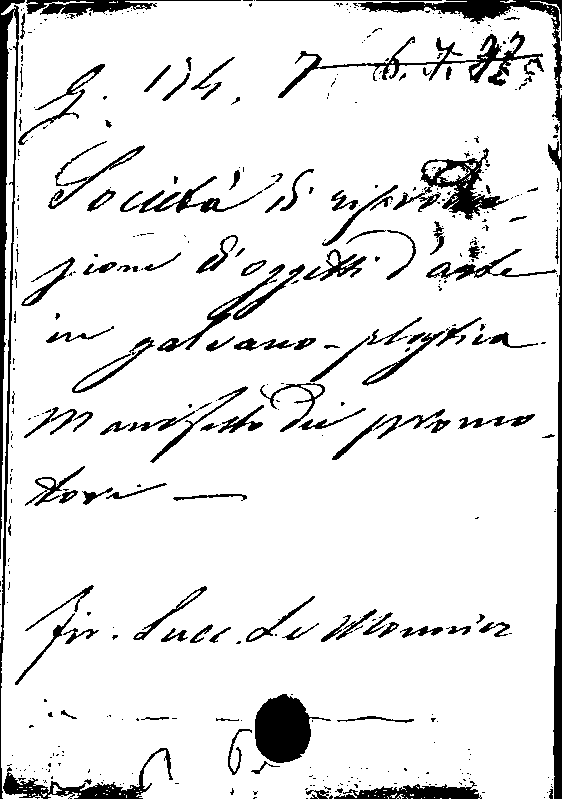 G. 174. 7 6.7.
Società di riprodu-
zione d'oggetti d'arte
in galvano-plastica
Manifesto dei promo-
tori —
Fir. Succ. Le Monnier